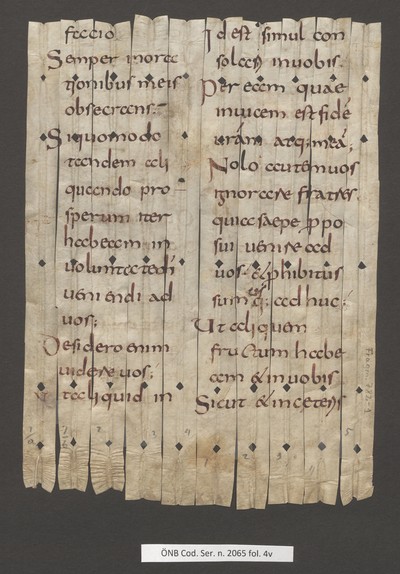 facio
Semper inorac
tionibus meis
obsecrans:
Siquomodo
tandem ali
quando pro
sperum iter
habeam in
uoluntate di
ueniendi ad
uos;
Desidero enim
uidere uos;
Ut aliquid in
Id est simul con
solari inuobis.
Per eam quae
inuicem est fidē
urām atq; meā;
Nolo autem uos
ignorare fratres
quia saepe ppo
sui uenire ad
uos & phibitus
sum usq; adhuc;
Ut aliquem
fructum habe
am & inuobis
Sicut & inceteris
ÖNB Cod. Ser. n. 2065 fol. 4v